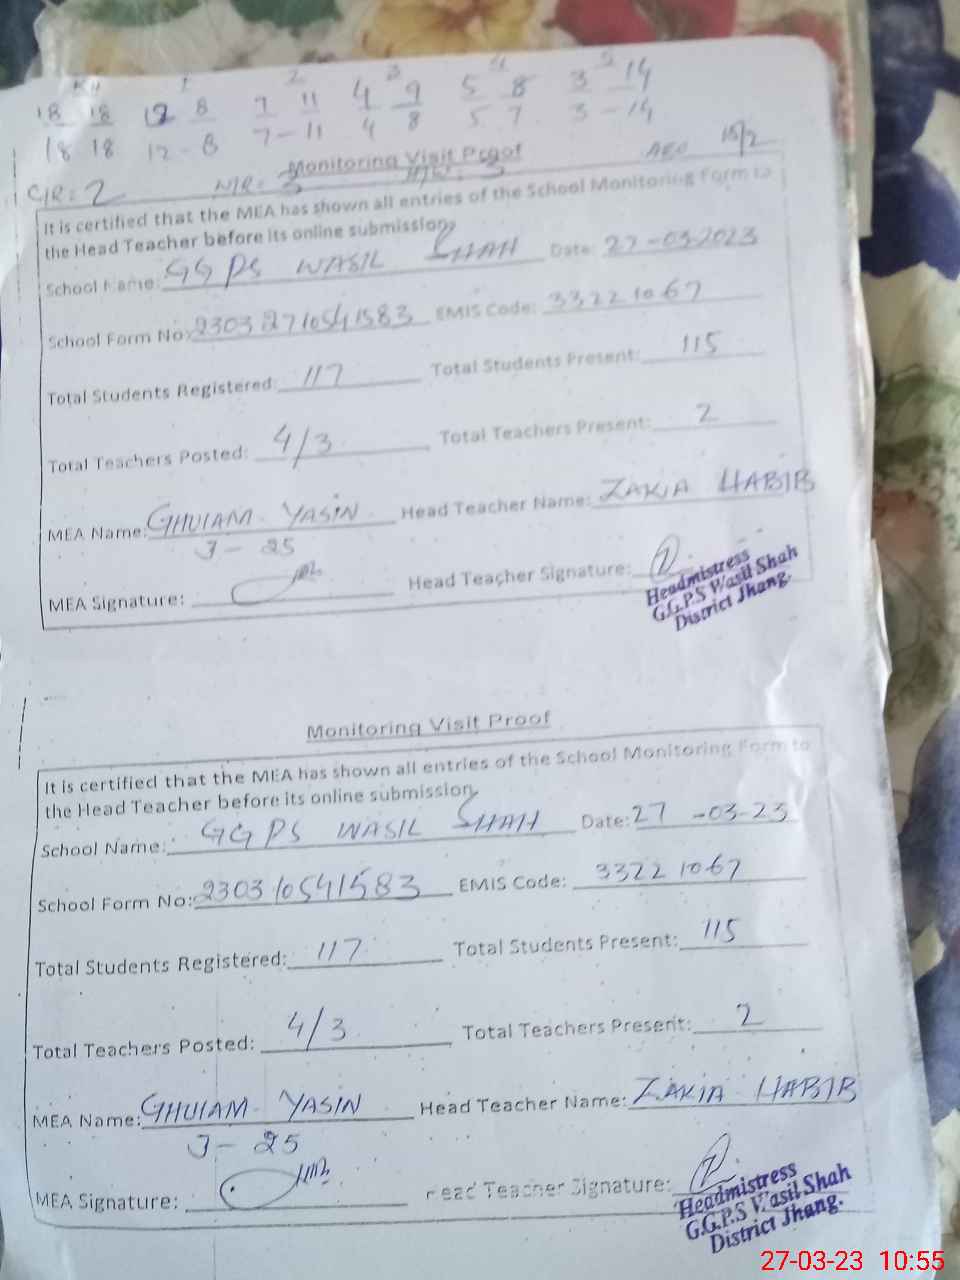 KH 1 2 3 4 5
18 18 12 8 7 11 4 9 5 8 3 14
18 18 12 - 8 7 - 11 4 8 5 7 3 - 14
Monitoring Visit Proof AEO 15/2
C/R: 2 N/R:
It is certified that the MEA has shown all entries of the School Monitoring Form to
the Head Teacher before its online submission,
School Name: GGPS WASIL SHAH Date: 27-03-2023
School Form No: 23032710541583 EMIS Code: 33221067
Total Students Registered: 117 Total Students Present: 115
Total Teachers Posted: 4/3 Total Teachers Present: 2
MEA Name: GHULAM YASIN Head Teacher Name: ZAKIA HABIB
J - 25
MEA Signature: Head Teacher Signature:
Headmistress
G.G.P.S Wasil Shah
District Jhang.
Monitoring Visit Proof
It is certified that the MEA has shown all entries of the School Monitoring Form to
the Head Teacher before its online submission,
School Name: GGPS WASIL SHAH Date: 27-03-23
School Form No: 230310541583 EMIS Code: 33221067
Total Students Registered: 117 Total Students Present: 115
Total Teachers Posted: 4/3 Total Teachers Present: 2
MEA Name: GHULAM YASIN Head Teacher Name: ZAKIA HABIB
J - 25
MEA Signature: Head Teacher Signature:
Headmistress
G.G.P.S Wasil Shah
District Jhang.
27-03-23 10:55